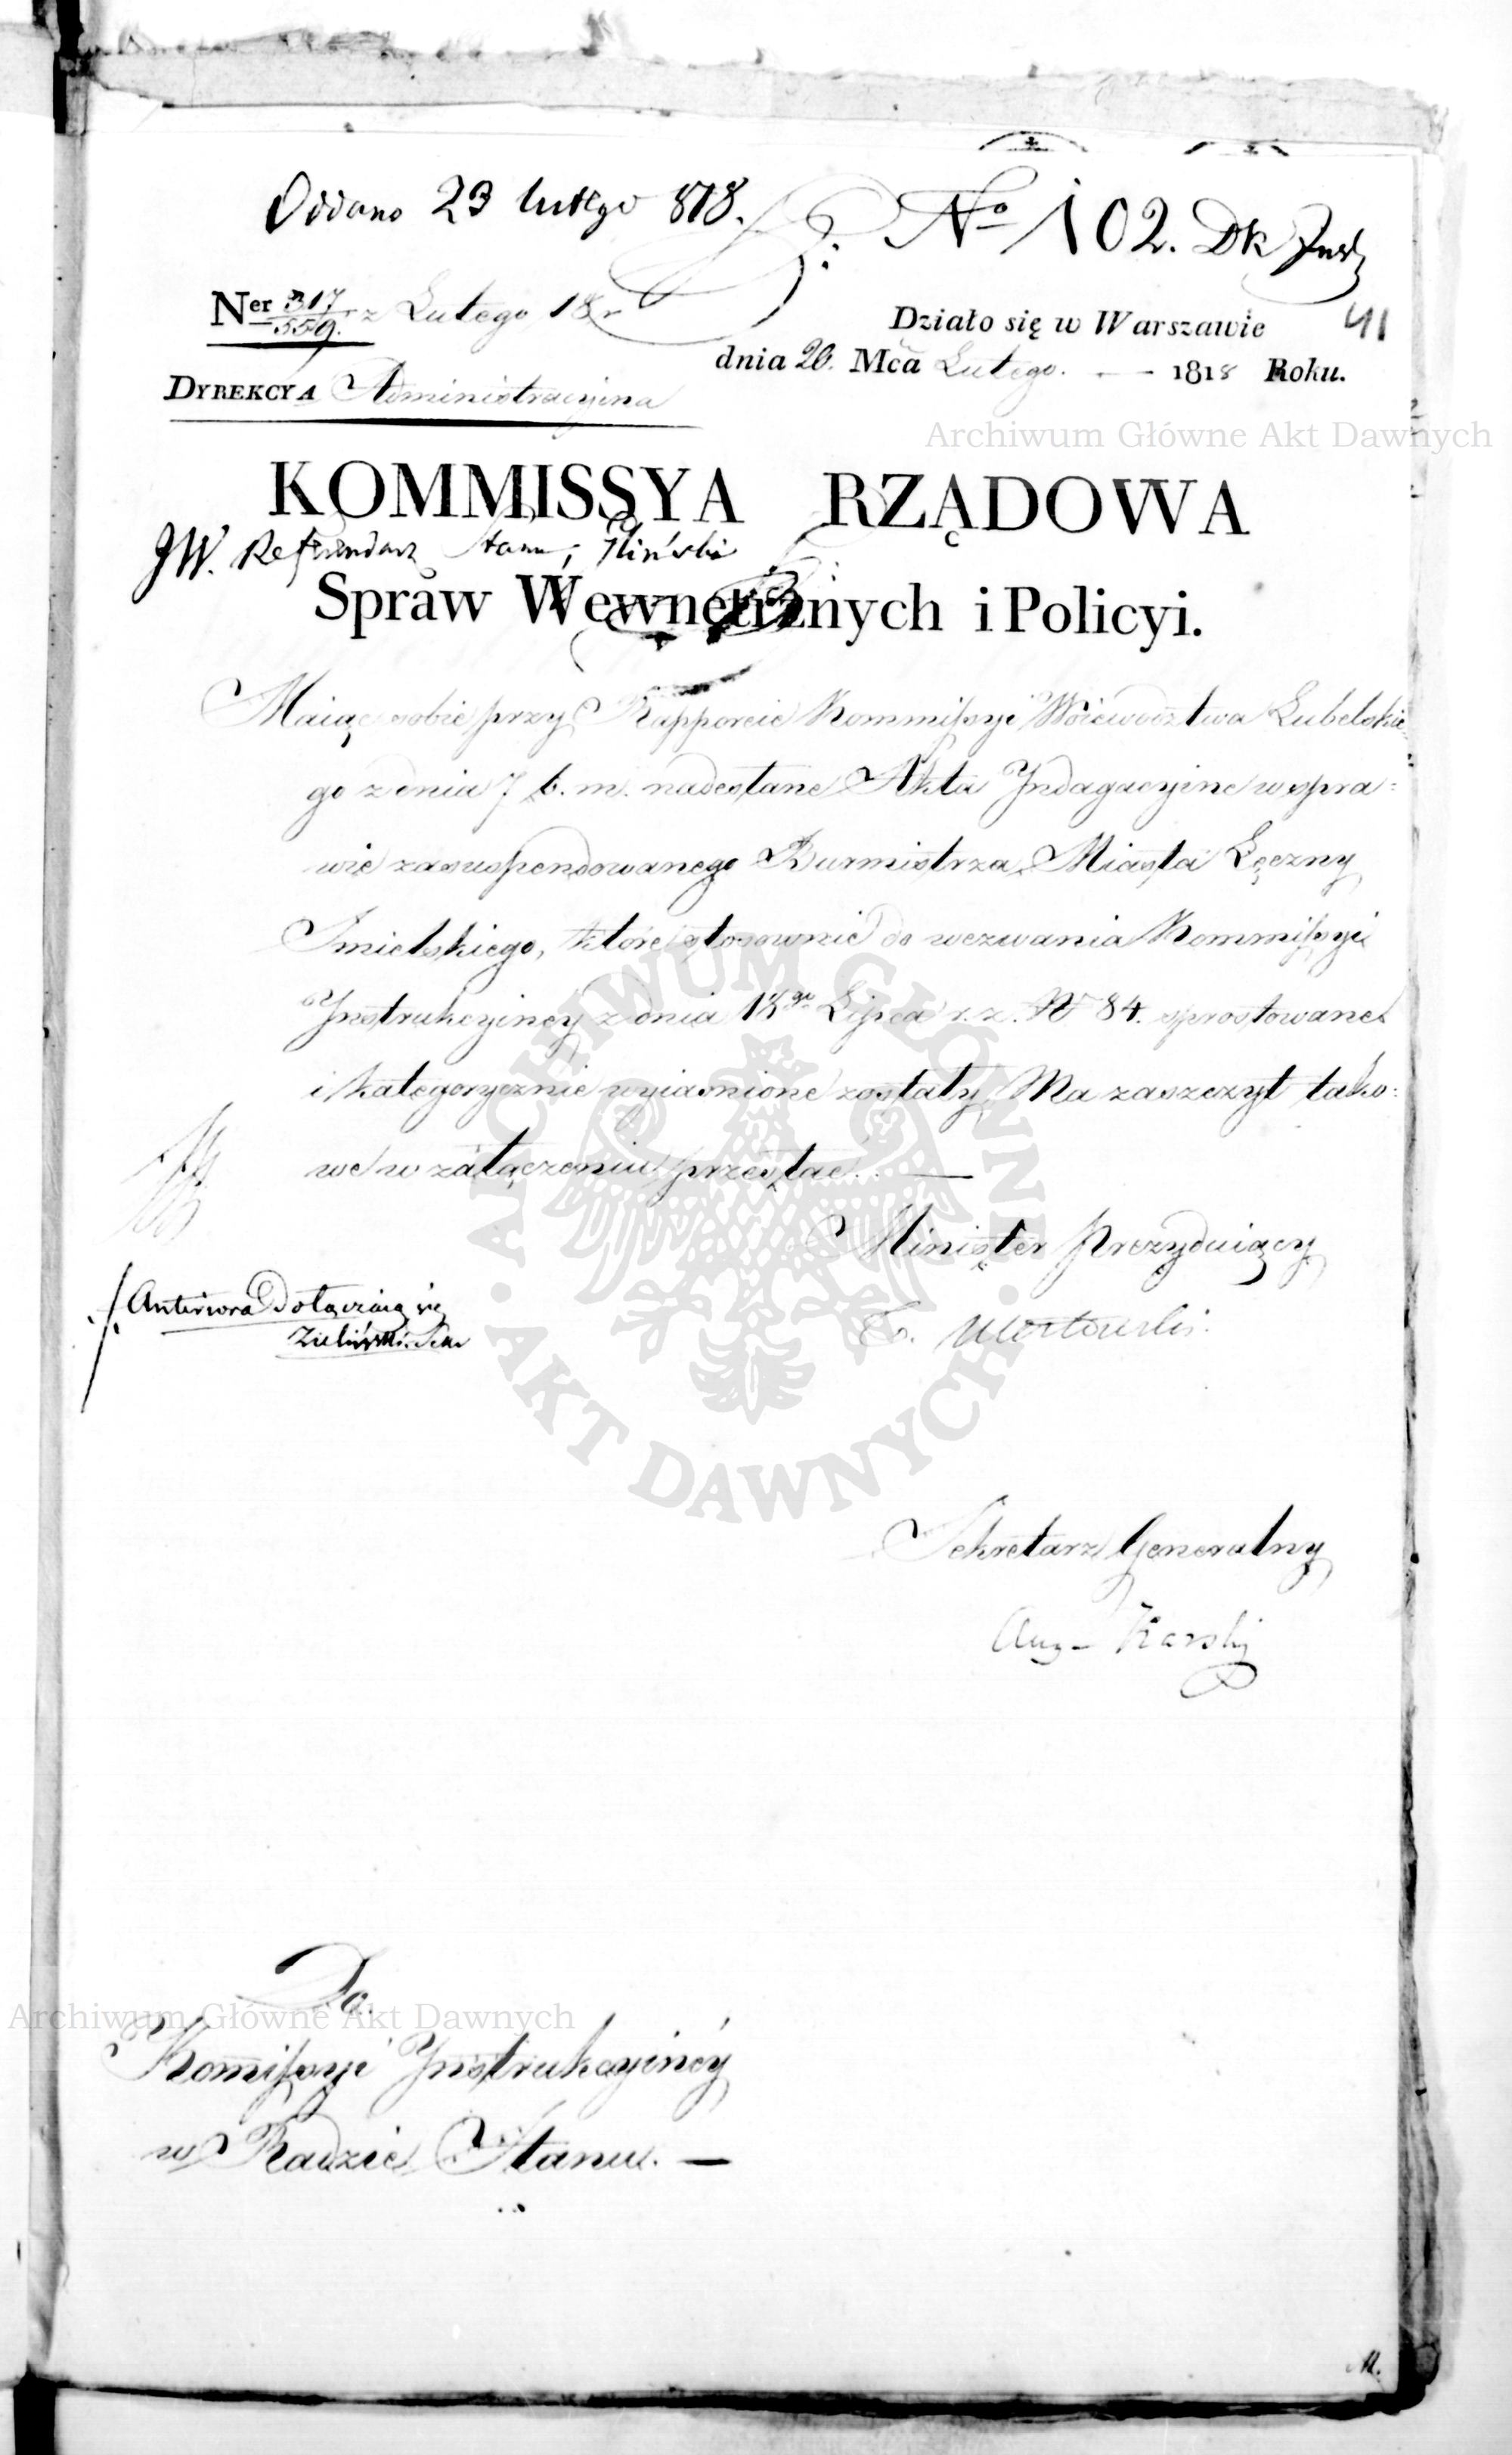 Oddano 23 lutego 818.
No 102. Dk
Ner 317/559. z Lutego 18 r
Działo się w Warszawie
41
dnia 20. Mca Lutego. — — 1818 Roku.
DYREKCYA Administracyina
Archiwum Główne Akt Dawnych
KOMMISSYA RZĄDOWA
JW. Referendarz Stanu, Iliński
Spraw Wewnętrznych i Policyi.
Maiąc sobie przy Rapporcie Kommissyi Woiewództwa Lubelskie
go z dnia 7 b. m. nadesłane Akta Indagacyine w spra=
wie zasuspendowanego Burmistrza Miasta Łęczny
Imielskiego, które stosownie do wezwania Kommissyi
Instrukcyiney z dnia 18go Lipca r. z. No 84. sprostowane
i kategorycznie wyiasnione zostały, Ma zaszczyt tako=
we w załączeniu przesłać. —
Minister Prezyduiący
T. Mostowski.
Anteriora Dołączaią się
Zieliński
ARCHIWUM GŁÓWNE AKT DAWNYCH
Sekretarz Generalny
Aug. Karski
Do
Archiwum Główne Akt Dawnych
Komissyi Instrukcyiney
w Radzie Stanu. —
M.